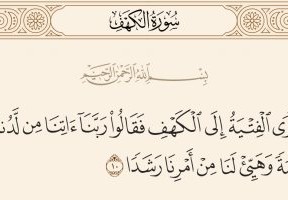 سُورَةُ ٱلْكَهْفِ
بِسْمِ ٱللَّهِ ٱلرَّحْمَٰنِ ٱلرَّحِيمِ
وَى ٱلْفِتْيَةُ إِلَى ٱلْكَهْفِ فَقَالُوا۟ رَبَّنَآ ءَاتِنَا مِن لَّدُن
ـةً وَهَيِّئْ لَنَا مِنْ أَمْرِنَا رَشَدًا ١٠